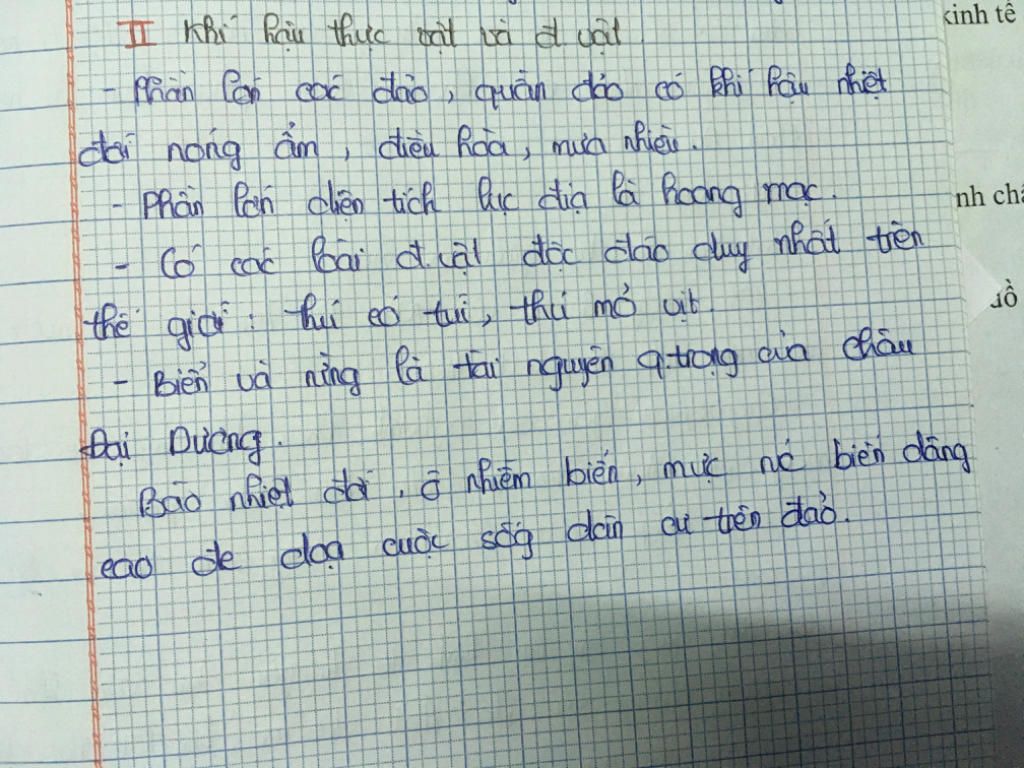 II Khí hậu thực vật và đ vật
kinh tế
- Phần lớn các đảo, quần đảo có khí hậu nhiệt
đới nóng ẩm, điều hòa, mưa nhiều.
- Phần lớn diện tích lục địa là hoang mạc.
- Có các loài đ.vật độc đáo duy nhất trên
thế giới: thú có túi, thú mỏ vịt.
- Biển và rừng là tài nguyên q.trọng của châu
Đại Dương.
Bão nhiệt đới, ô nhiễm biển, mực nc biển dâng
cao đe dọa cuộc sốg dân cư trên đảo.